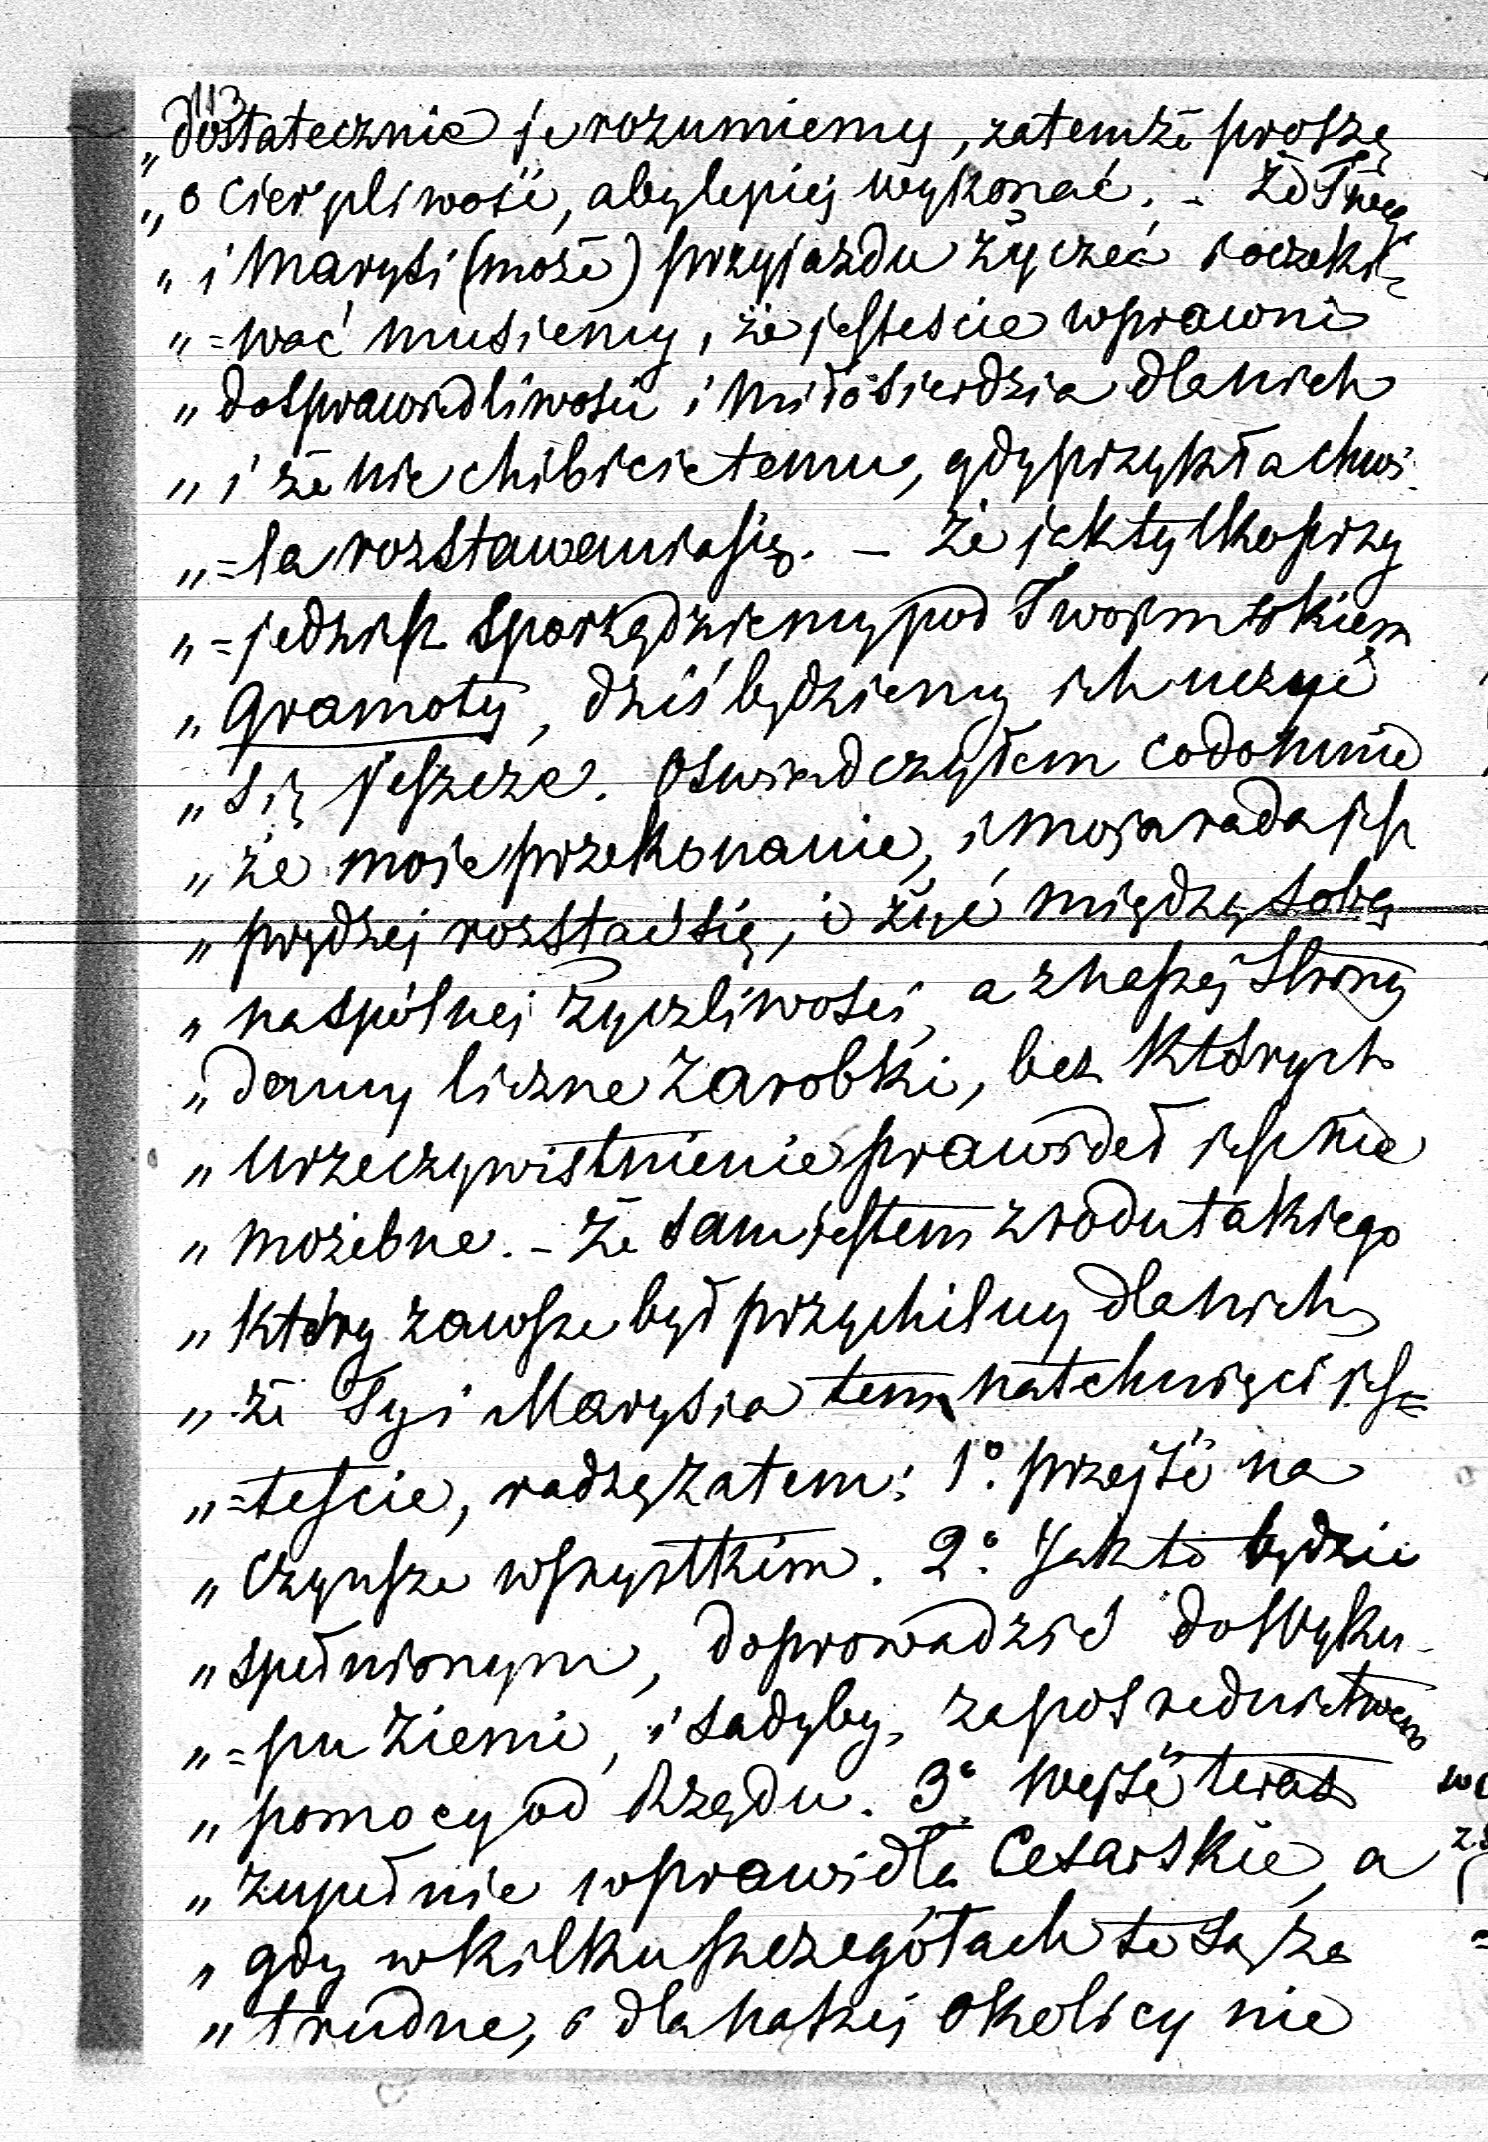 113
„dostatecznie je rozumiemy, zatem że proszę
„o cierpliwość, aby lepiej wykonać. – Że Twego
„i Marysi (może) przyjazdu życzeć i oczeki=
„=wać musiemy, że jesteście wprawni
„do sprawiedliwości i miłosierdzia dla nich
„i że nie chibicie temu, gdy przykła chwi
„=la rozstawania się. – Że jak tylko przy
„=jedziesz sporządziemy pod Twoim okiem
„Gramoty, dziś będziemy ich uczyć
„się jeszcze. Oświadczyłem co do mnie
„że moje przekonanie, i moja rada jest
„prędzej rozstać się, i żyć między sobą
„na spólnej życzliwości, a z naszej strony
„damy liczne zarobki, bez których
„urzeczywistnienie prawideł jest nie
„możebne. – Że sam jestem z rodu takiego
„który zawsze był przychilny dla nich
„że Ty i Marysia tem natchnięci jes=
„=teście, radzę zatem: 1° przejść na
„czynsze wszystkim. 2° Jak to będzie
„spełnionym, doprowadzić do wyku
„=pu Ziemi, i sadyby, za pośrednictwem
„pomocy od Rządu. 3° wejść teraz
„zupełnie w prawidła Cesarskie, a
„gdy w kilku szczegółach te są za
„trudne, i dla naszej okolicy nie